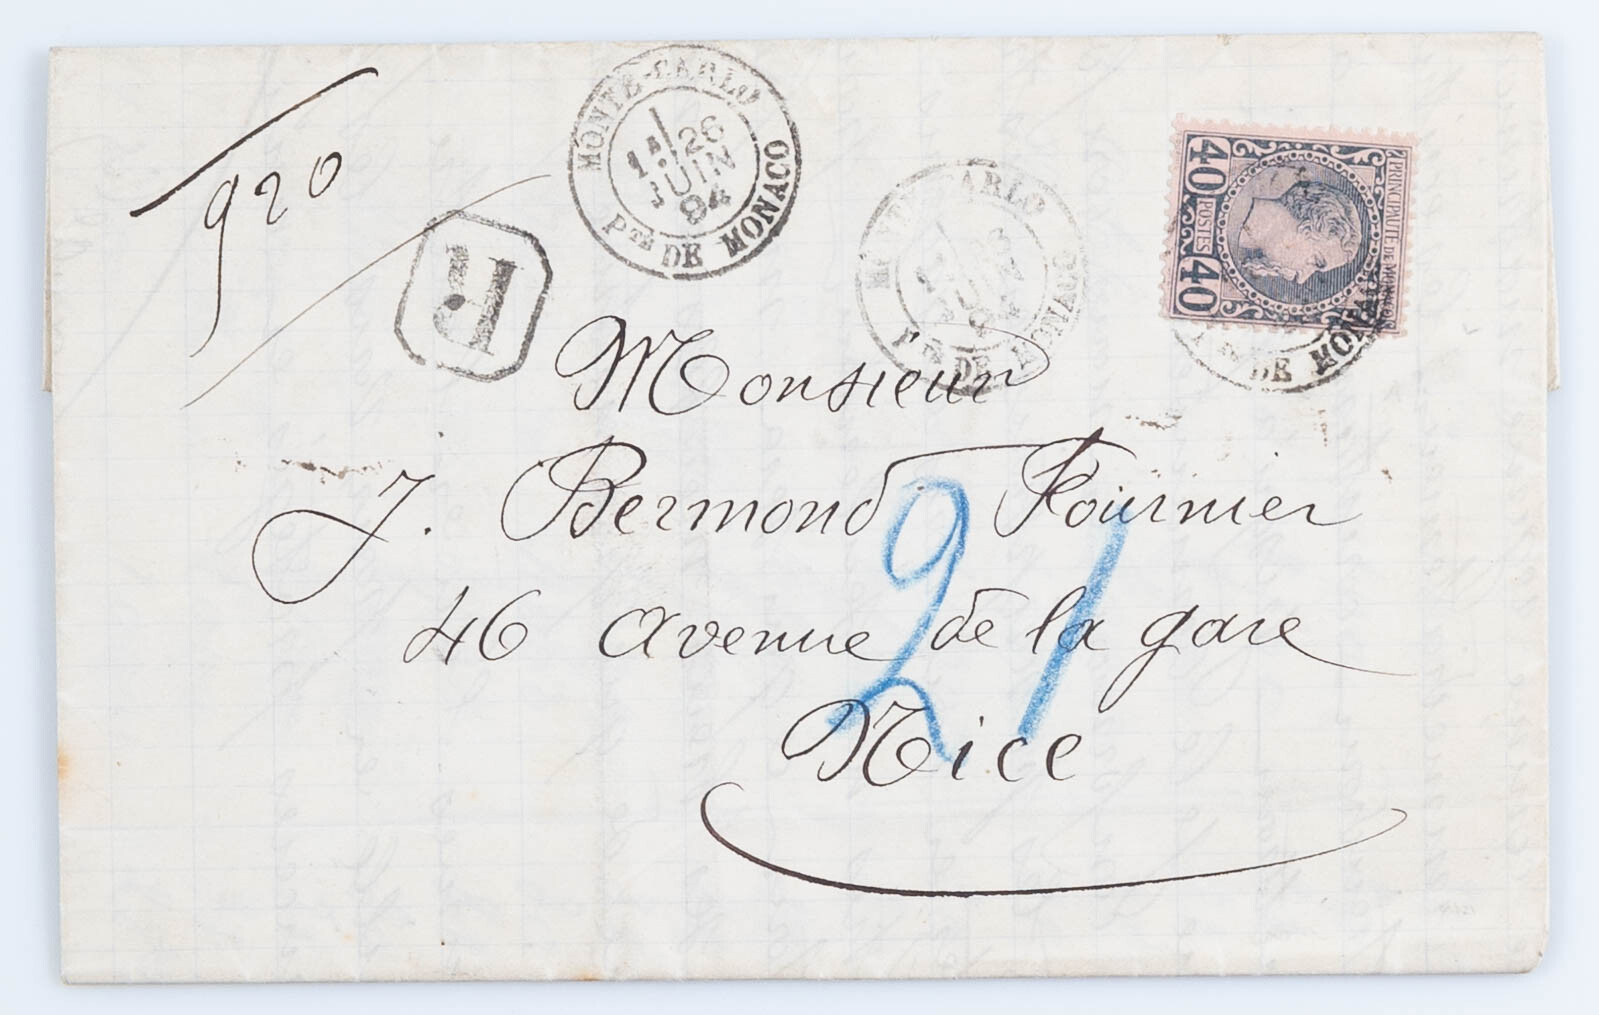 920
R
MONTE-CARLO
1E 26
JUIN
94
PTÉ DE MONACO
MONTE CARLO
JUIN
PTÉ DE MONACO
PRINCIPAUTÉ DE MONACO
40 POSTES 40
DE MONACO
Monsieur
J. Bermond Fournier
46 avenue de la gare
Nice
21